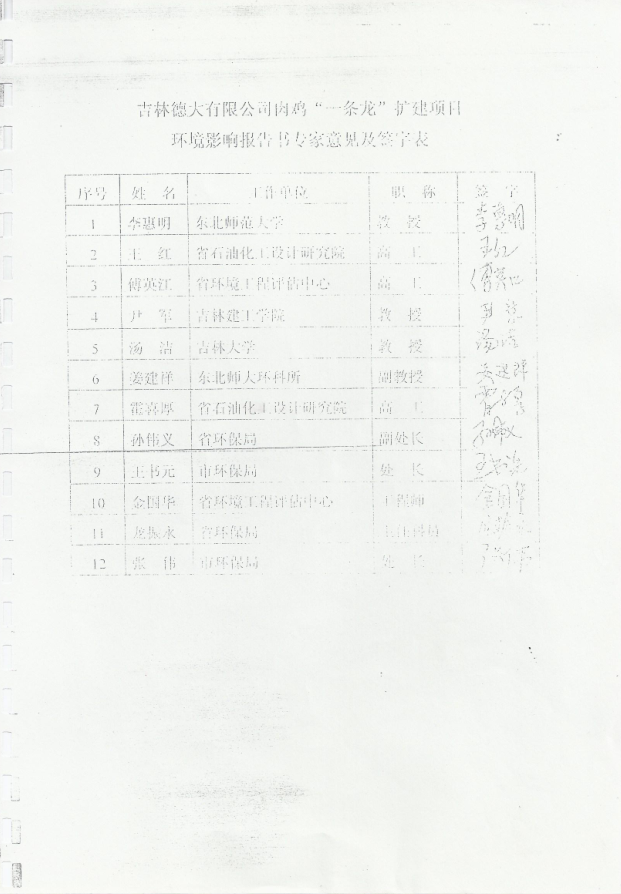 吉林德大有限公司肉鸡“一条龙”扩建项目
环境影响报告书专家意见及签字表
序号 姓 名 工作单位 职 称 签 字
1 李惠明 东北师范大学 教 授 李惠明
2 王 红 省石油化工设计研究院 高 工 王红
3 傅英江 省环境工程评估中心 高 工
4 尹 军 吉林建工学院 教 授
5 汤 洁 吉林大学 教 授 汤洁
6 姜建祥 东北师大环科所 副教授
7 霍喜厚 省石油化工设计研究院 高 工
8 孙伟义 省环保局 副处长
9 王书元 市环保局 处 长
10 金国华 省环境工程评估中心 工程师 金国华
11 龙振永 省环保局 主任科员
12 张 伟 市环保局 处 长